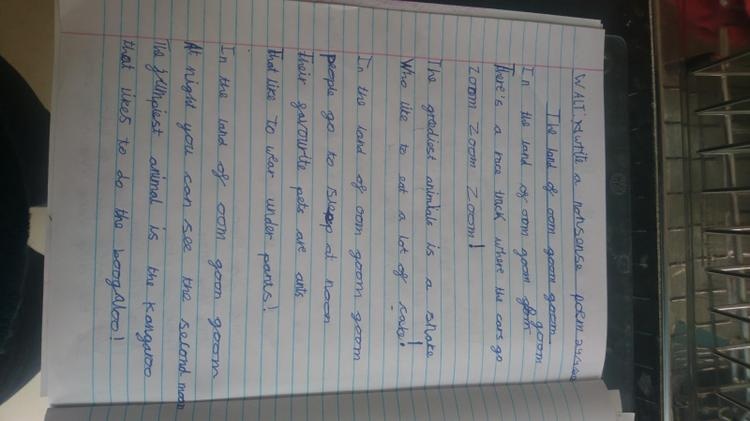 WALT: write a nonsense poem
The land of oom goom goom
In the land of oom goom goom
There's a race track where the cars go
Zoom Zoom Zoom!
The greediest animals is a snake
Who like to eat a lot of cake!
In the land of oom goom goom
people go to sleep at noon
Their favourite pets are ants
That like to wear under pants!
In the land of oom goon goom
At night you can see the second moon
The jumpiest animal is the Kangaroo
that likes to do the boogaloo!